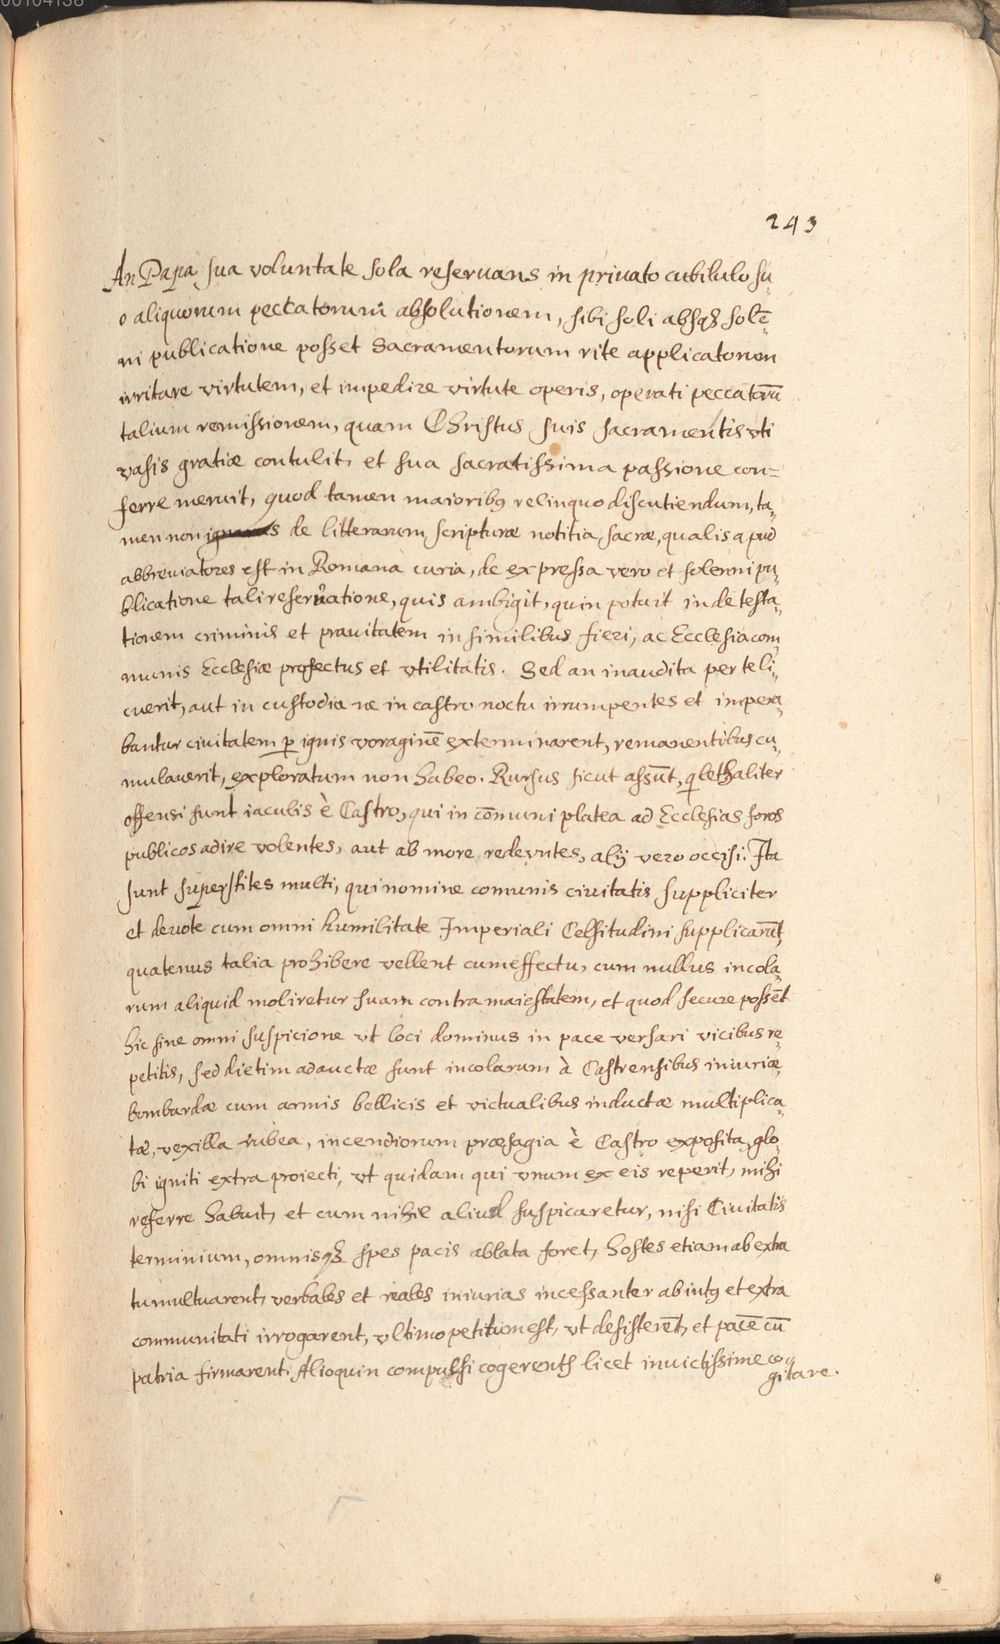 00104138
243
An Papa sua voluntate sola reseruans in priuato cubilulo su„
o aliquorum peccatorum absolutionem, sibi soli absqȝ solē„
ni publicatione posset Sacramentorum rite applicatonen
irritare virtutem, et impedire virtute operis, operati peccatorū
talium remissionem, quam Christus suis sacramentis vti
vasis gratiæ contulit, et sua sacratissima passione con=
ferre meruit, quod tamen maioribꝰ relinquo discutiendum, ta„
men non de litterarum scripturæ notitia, sacræ, qualis apud
abbreuiatores est in Romana curia, de expressa vero et solenni pu„
blicatione tali reseruatione, quis ambigit, quin potuit in detesta„
tionem criminis et prauitatem in similibus fieri, ac Ecclesia com„
munis Ecclesiæ profectus et vtilitatis. Sed an inaudita perteli„
cuerit, aut in custodia ne in castro noctu irrumpentes et impera„
bantur ciuitatem ꝑ ignis voraginē exterminarent, remanentibus cu„
mulauerit, exploratum non habeo. Rursus sicut assūt, q lethaliter
offensi sunt iaculis è Castro, qui in cōmuni platea ad Ecclesias foros
publicos adire volentes, aut ab more redeuntes, alij vero occisi: Ita
sunt superstites multi, qui nomine comunis ciuitatis suppliciter
et deuote cum omni humilitate Imperiali Celsitudini supplicarūt,
quatenus talia prohibere vellent cum effectu, cum nullus incola„
rum aliquid moliretur suam contra maiestatem, et quod secure possēt
hic sine omni suspicione vt loci dominus in pace versari vicibus re„
petitis, sed dietim adauctæ sunt incolarum à Castrensibus iniuriæ,
bombardæ cum armis bellicis et victualibus inductæ multiplica„
tæ, vexilla rubea, incendiorum præsagia è Castro exposita, glo„
bi igniti extra proiecti, vt quidam qui vnum ex eis reperit, mihi
referre habuit, et cum nihil aliud suspicaretur, nisi Ciuitatis
terminium, omnisqȝ spes pacis ablata foret, hostes etiam ab extra
tumultuarent, verbales et reales iniurias incessanter ab intꝰ et extra
communitati irrogarent, vltimo petitum est, vt desisterēt, et pacē cū
patria firmarent. Alioquin compulsi cogerentȝ licet inuictissime co„
gitare.